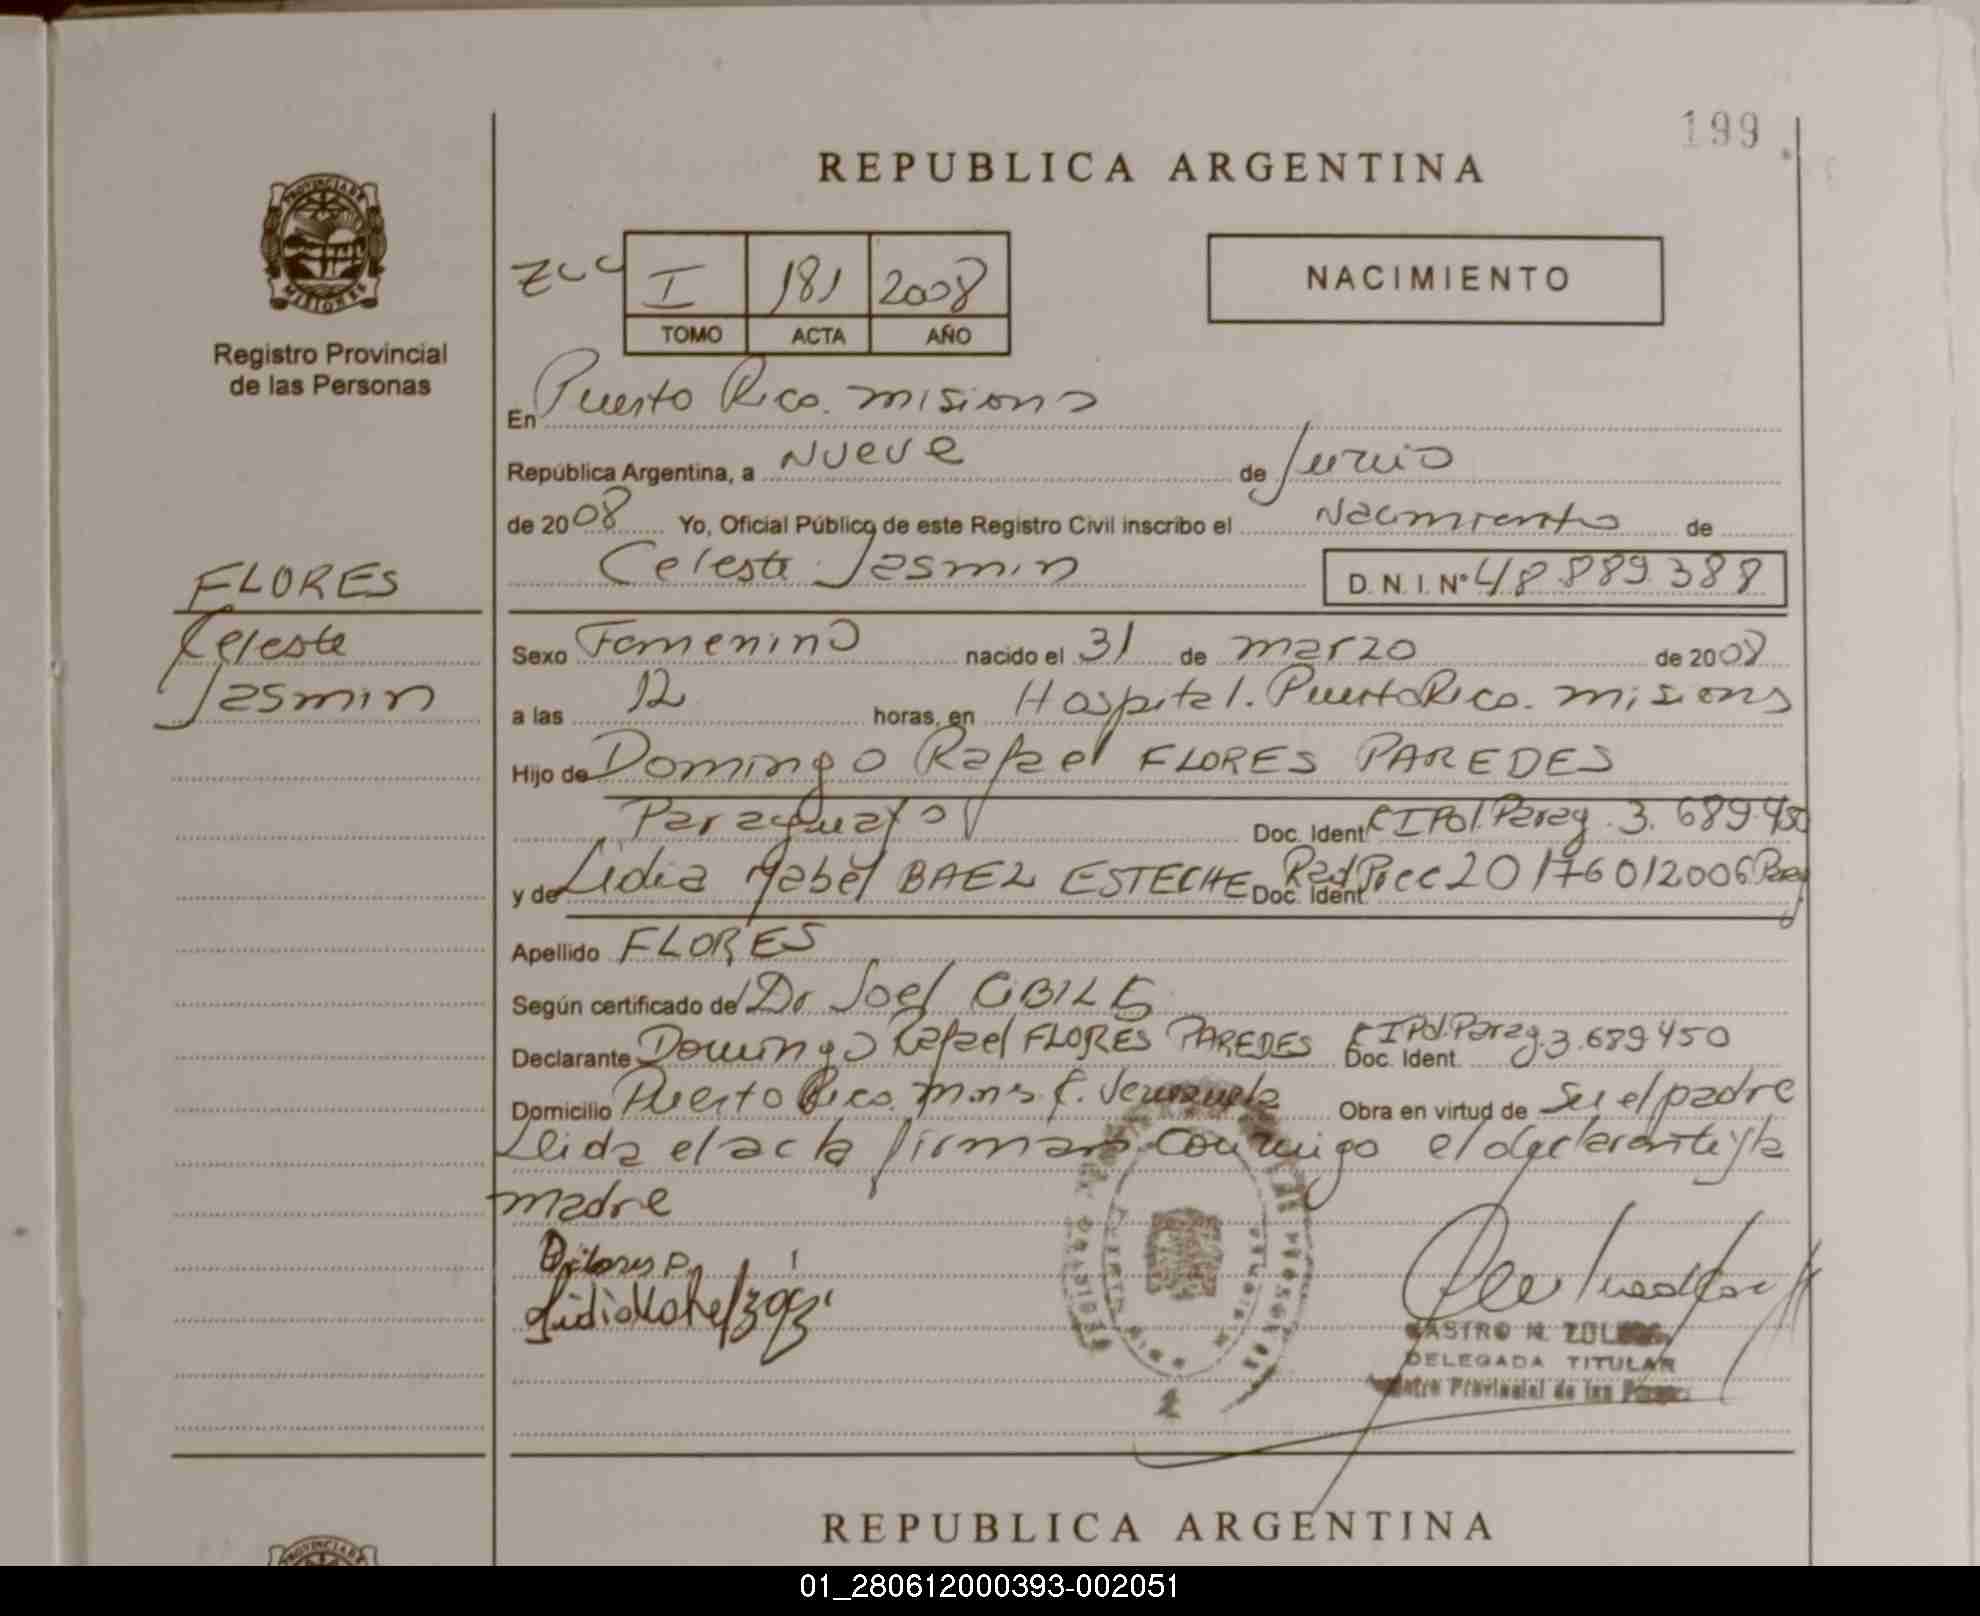 199
REPUBLICA ARGENTINA
PROVINCIA DE
MISIONES
Registro Provincial
de las Personas
I 181 2008
TOMO ACTA AÑO
NACIMIENTO
En Puerto Rico. Misiones
República Argentina, a Nueve de Junio
de 2008 Yo, Oficial Público de este Registro Civil inscribo el Nacimiento de
Celeste Jasmin D.N.I. Nº 48.889.388
FLORES
Celeste
Jasmin
Sexo Femenino nacido el 31 de marzo de 2008
a las 12 horas, en Hospital. Puerto Rico. Misiones
Hijo de Domingo Rafael FLORES PAREDES
Paraguayo Doc. Ident. CIPol.Parag. 3.689.450
y de Lidia Mabel BAEZ ESTECHE Doc. Ident. 20176012006
Apellido FLORES
Según certificado de Dr Joel
Declarante Domingo Rafael FLORES PAREDES Doc. Ident. CIPol.Parag. 3.689.450
Domicilio Puerto Rico. Mnes. Venezuela Obra en virtud de Ser el padre
Leida el acta firman conmigo el declarante y la
madre
CASTRO N.
DELEGADA TITULAR
Provincial de las
REPUBLICA ARGENTINA
01_280612000393-002051